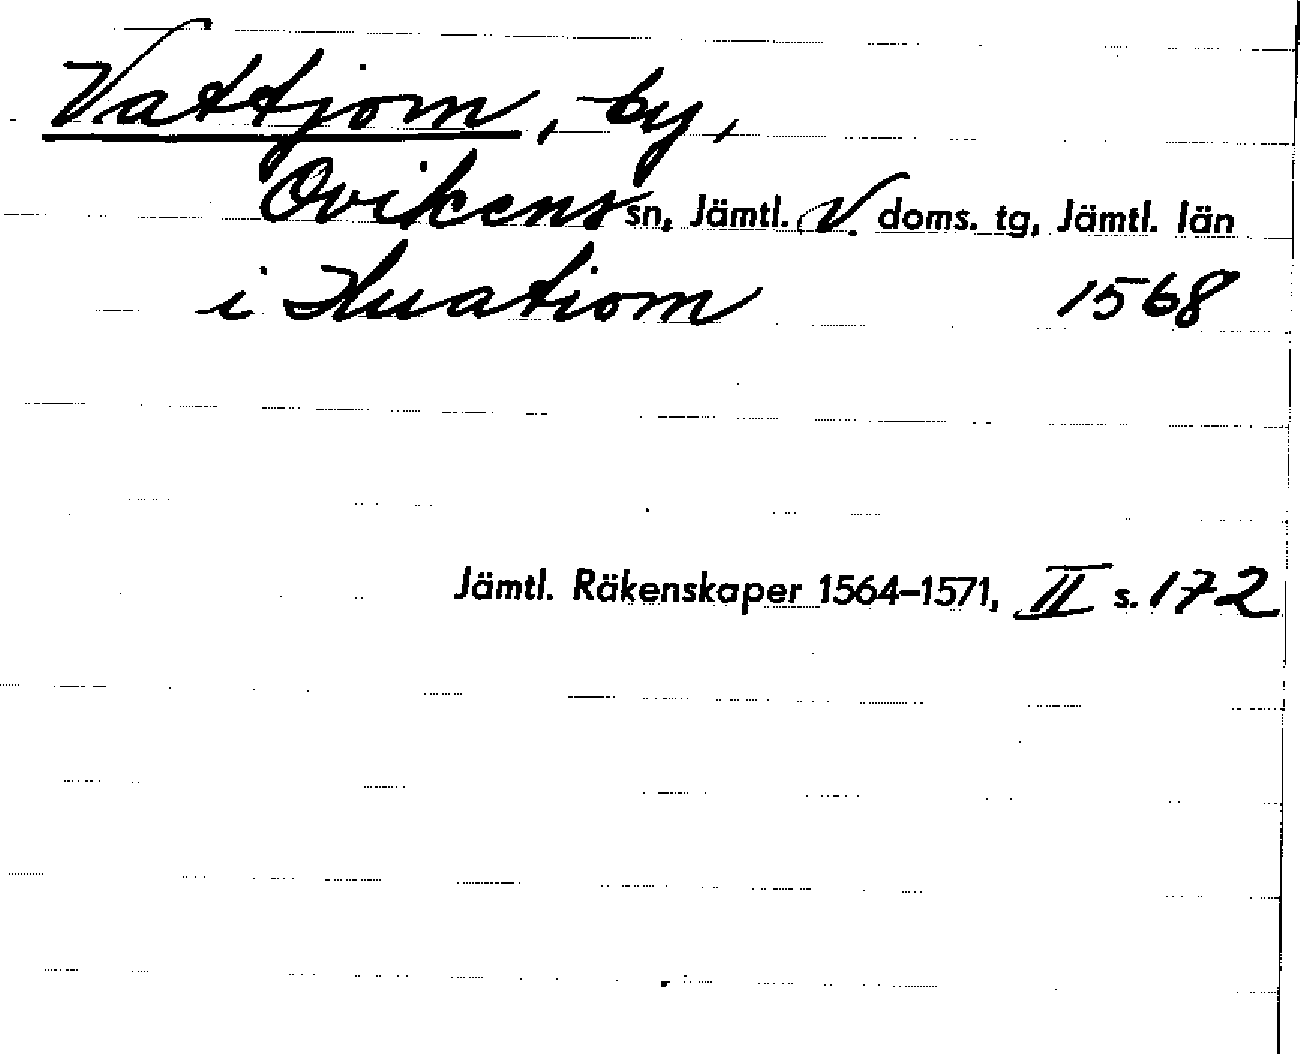 Vattjom, by,
Ovikens sn, Jämtl. V. doms. tg, Jämtl. län
i Huatiom 1568
Jämtl. Räkenskaper 1564–1571, II s. 172